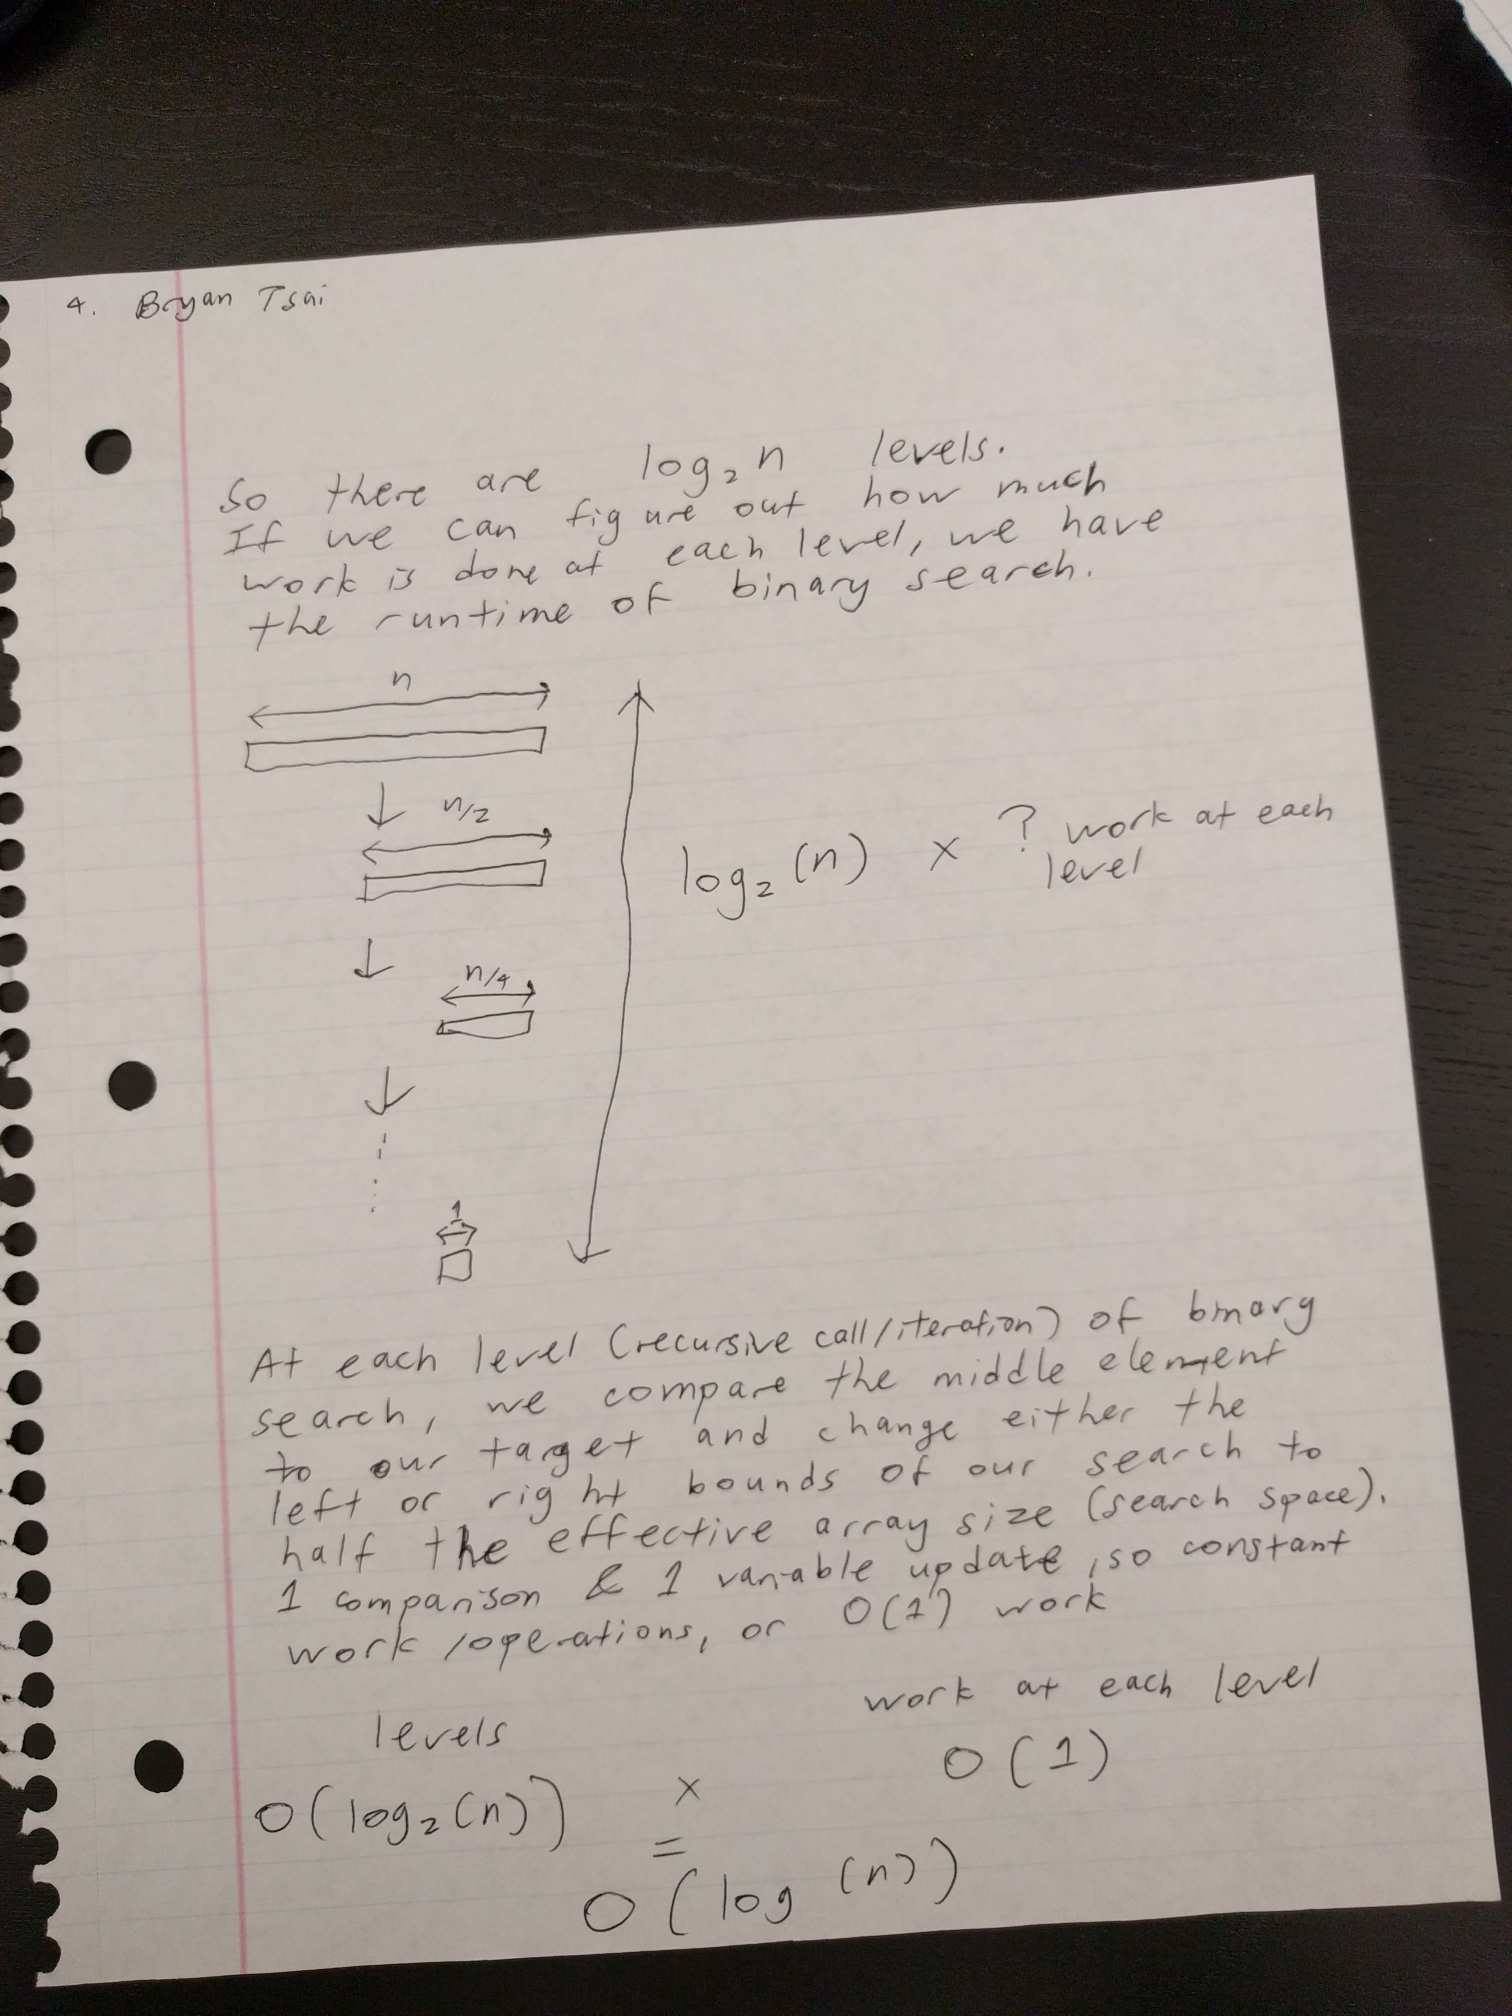 4. Bryan Tsai
So there are log₂n levels.
If we can figure out how much
work is done at each level, we have
the runtime of binary search.
n
n/2
log₂(n) × ? work at each
level
n/4
1
At each level (recursive call/iteration) of binary
search, we compare the middle element
to our target and change either the
left or right bounds of our search to
half the effective array size (search space).
1 comparison & 1 variable update, so constant
work/operations, or O(1) work
levels work at each level
O(log₂(n)) × O(1)
=
O(log(n))